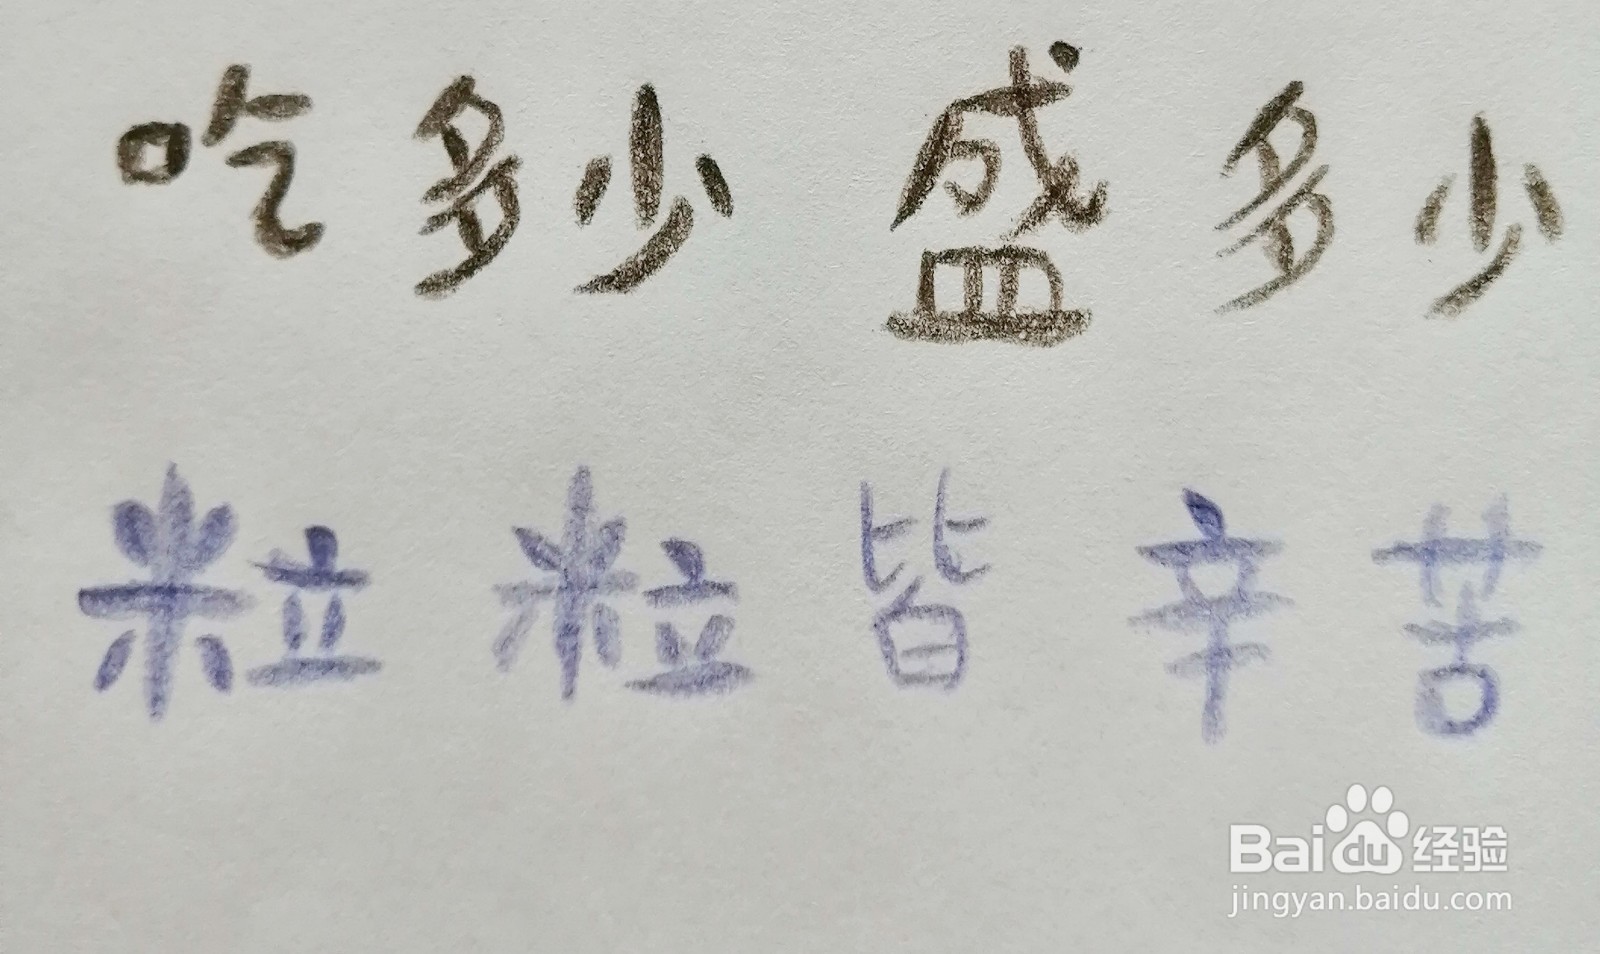 吃多少 盛多少
粒粒皆辛苦
Baidu经验
jingyan.baidu.com